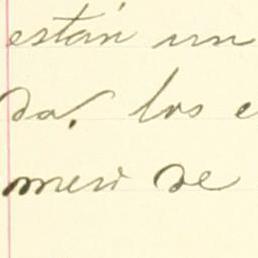 están un
da. los e
mesi de